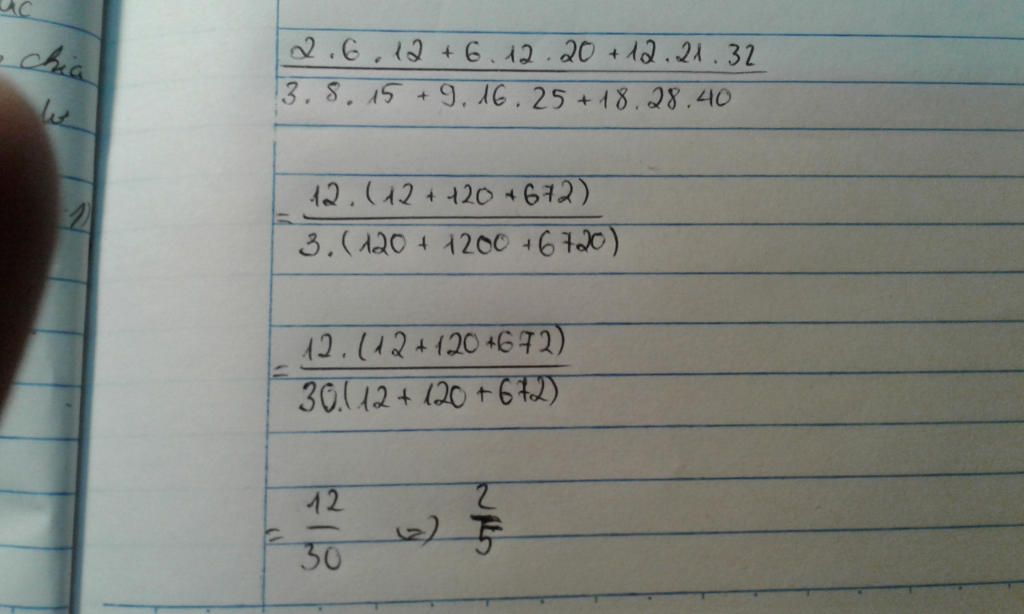 chia
2.6.12+6.12.20+12.21.32
3.8.15+9.16.25+18.28.40
= 12.(12+120+672)
3.(120+1200+6720)
= 12.(12+120+672)
30.(12+120+672)
= 12/30 <=> 2/5